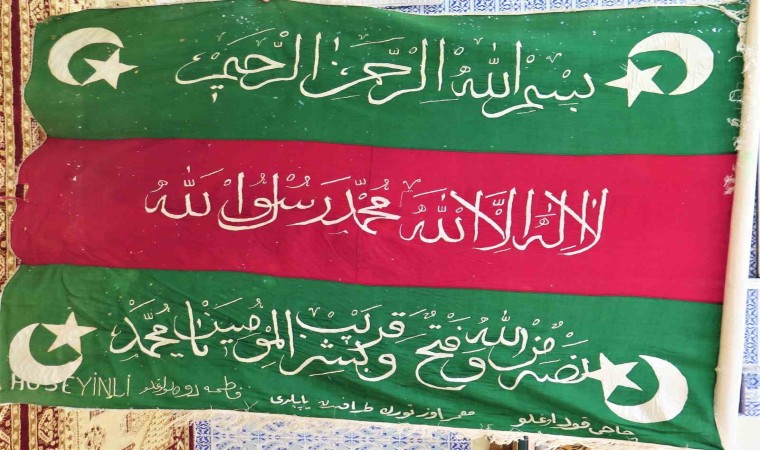 بِسْمِ اللّٰهِ الرَّحْمٰنِ الرَّحِيمِ
لَا اِلٰهَ اِلَّا اللّٰهُ مُحَمَّدٌ رَسُولُ اللّٰه
نصر من الله وفتح قريب وبشر المؤمنين يا محمد
HÜSEYİNLİ فاطمه
حاجى